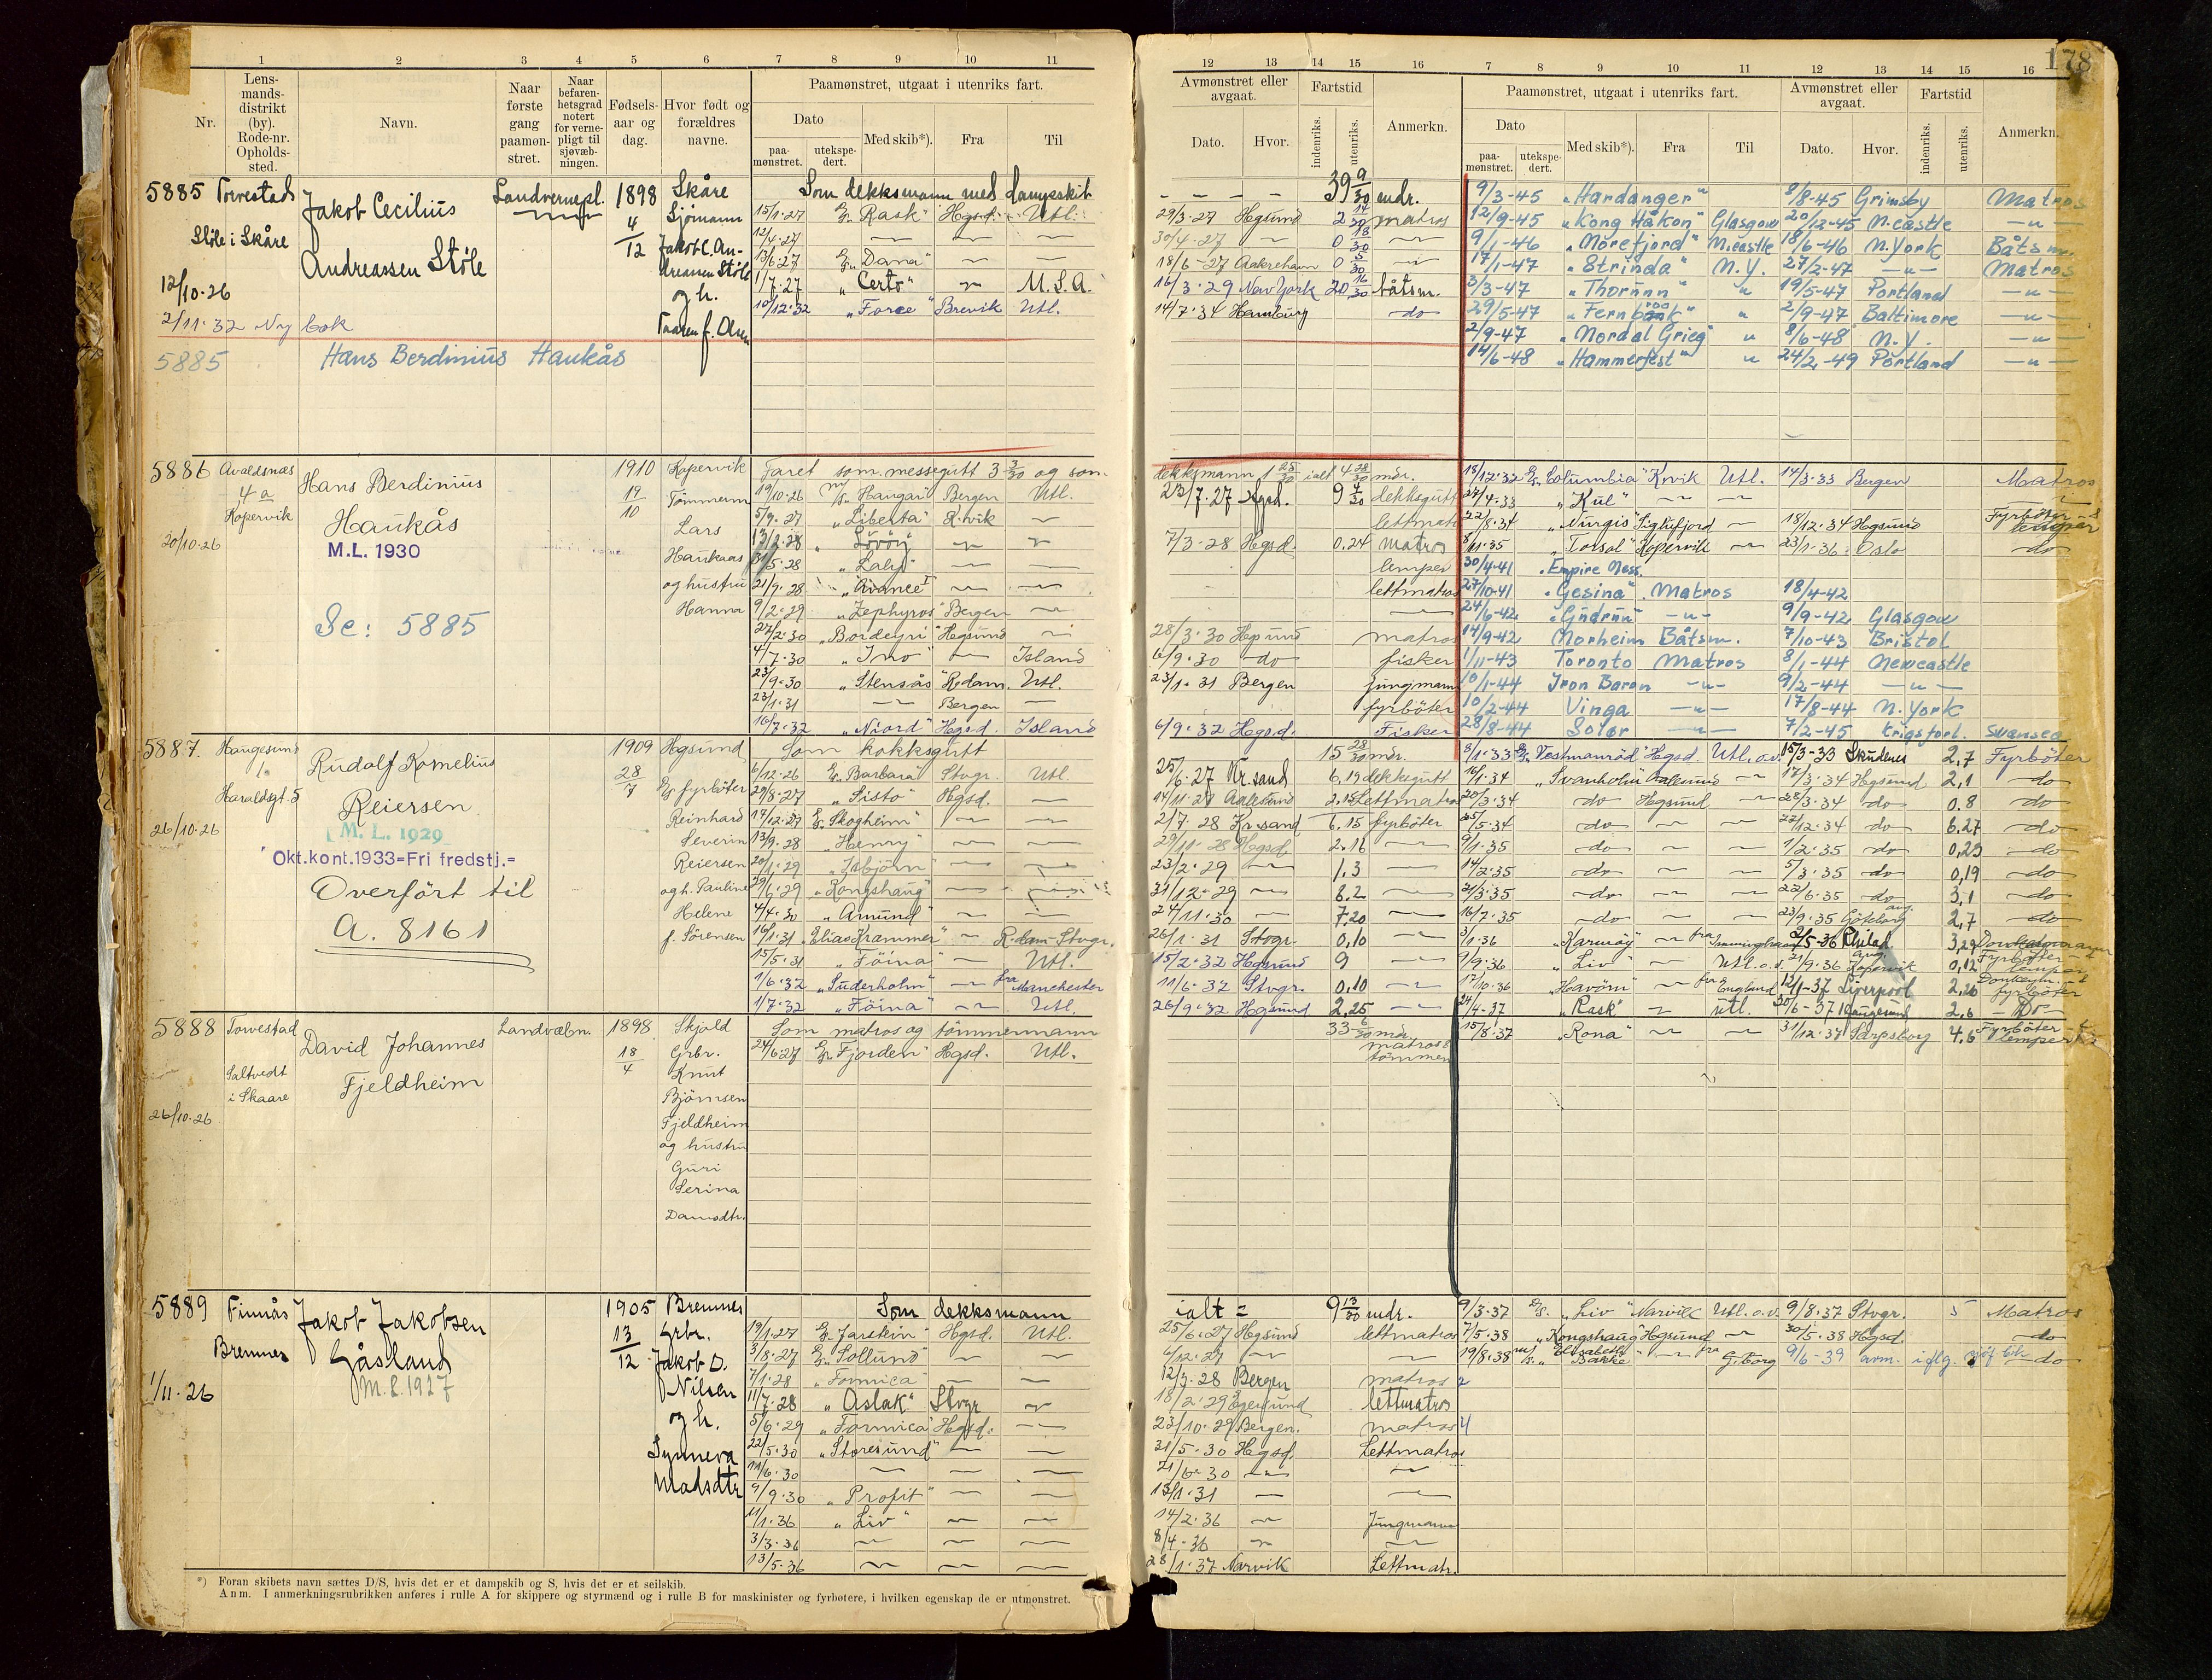 178
1 2 3 4 5 6 7 8 9 10 11
12 13 14 15 16 7 8 9 10 11 12 13 14 15 16
Nr. Lensmandsdistrikt (by). Rode-nr. Opholdssted. Navn. Naar første gang paamønstret. Naar befarenhetsgrad notert for vernepligt til sjøvæbningen. Fødselsaar og dag. Hvor født og forældres navne. Paamønstret, utgaat i utenriks fart.
Dato Med skib*). Fra Til
paamønstret. utekspedert.
Avmønstret eller avgaat. Fartstid Anmerkn.
Dato. Hvor. indenriks. utenriks.
Paamønstret, utgaat i utenriks fart. Avmønstret eller avgaat. Fartstid
Dato Med skib*). Fra Til Dato. Hvor. indenriks. utenriks. Anmerkn.
paamønstret. utekspedert.
5885 Torvestad Jakob Cecilius Andreassen Støle Landvernepl. 1898 4/12 Skåre Sjømann
Støle i Skåre
12/10.26
2/11.32 Ny bok
Jakob C. Andreassen Støle og h.
Som dekksmann med dampskib 39 9/30 mdr.
15/1.27 "Rask" Hgsd. Utl. 29/3.27 Hgsund 2 14/30 matros
12/4.27 30/4.27 0 18/30
13/6.27 "Dana" 18/6-27 Aakrehavn 0 5/30
1/7.27 "Certo" U.S.A. 16/3.29 New York 20 16/30 båtsm.
10/12.32 "Force" Brevik Utl. 14/7.34 Hamburg do
5885 Hans Berdinius Haukås
9/3-45 "Hardanger" 8/8-45 Grimsby Matros
12/9-45 "Kong Håkon" Glasgow 20/12-45 N.castle -"-
9/1-46 "Norefjord" N.castle 18/6-46 N.York Båtsm.
17/1-47 "Strinda" N.Y. 27/2-47 -"- Matros
3/3-47 "Thorunn" " 19/5-47 Portland -"-
29/5-47 " 2/9-47 Baltimore -"-
2/9-47 "Nordal Grieg" " 8/6-48 N.Y. -"-
14/6-48 "Hammerfest" " 24/2-49 Portland -"-
5886 Avaldsnæs 4 a Kopervik 20/10.26
Hans Berdinius Haukås
M.L. 1930
Se: 5885
1910 19/10 Kopervik Tømmerm. Lars Haukaas og hustru Hanna
Faret som messegutt 3 3/30 og som dekksmann 1 25/30 ialt 4 28/30 mdr.
19/10.26 "Haugar" Bergen Utl. 23/7.27 Hgsd. 9 4/30 dekksgutt
5/9.27 "Liberta" K.vik lettmatr
13/2.28 7/3-28 Hgsd. 0.24 matros
31/5.28 "Laly" lemper
21/9.28 "Avance I" lettmatros
9/2.29 "Zephyros" Bergen
27/2.30 "Bordeyri" Hgsund 28/3.30 Hgsund matros
4/7.30 "Ino" Island 6/9.30 do fisker
23/9.30 "Stensås" R.dam. Utl. 23/1.31 Bergen jungmann
23/1.31 Bergen fyrbøter
16/7.32 "Njord" Hgsd. Island 6/9.32 Hgsd. Fisker
18/12.32 "Columbia" K.vik Utl. 14/3.33 Bergen Matros
27/4.33 "Kul"
22/8.34 Siglufjord 18/12.34 Hgsund Fyrbøter lemper
8/11.35 "Torsal" Kopervik 23/1.36 Oslo do
30/4-41 "Empire Ness"
27/10-41 "Gesina" Matros 18/4-42
24/6-42 "Gudrun" -"- 9/9-42 Glasgow
14/9-42 Norheim Båtsm. 7/10-43 Bristol
1/11-43 Toronto Matros 8/1-44 Newcastle
10/1-44 Iron Baron -"- 9/2-44 -"-
10/2-44 Vinga -"- 17/8-44 N.York
28/8-44 Solør -"- 7/2-45 krigsforl. Swansea
5887. Haugesund 1. Haraldsgt. 5 26/10.26
Rudolf Kornelius Reiersen
M.L. 1929
Okt.kont.1933=Fri fredstj.=
Overført til A. 8161
1909 28/7 Hgsund fyrbøter Reinhard Severin Reiersen og h. Pauline Helene f. Sørensen
Som kokksgutt 15 28/30 mdr.
6/12.26 "Barbara" Stvgr. Utl. 25/6.27 Kr.sand 6.19 dekksgutt
29/8.27 "Sisto" Hgsd. 14/11.27 Aalesund 2.15 Lettmatros
17/12.27 "Skogheim" 2/7.28 Kr.sand 6.15 fyrbøter
13/9.28 "Henry" 29/11.28 Hgsd. 2.16
20/1.29 "Isbjørn" 23/2.29 1.3
29/6.29 "Kongshaug" 31/12.29 6.2
4/4.30 "Amund" 24/11.30 7.20
16/1.31 "Elias Krammer" R.dam-Stvgr. 26/1.31 Stvgr. 0,10
15/5.31 "Föina" Utl. 15/2.32 Hgsund 9
1/6.32 "Suderholm" fra Manchester 11/6.32 Stvgr. 0,10
1/7.32 "Föina" Utl. 26/9.32 Hgsund 2,25
8/1.33 "Vestmanröd" Hgsd. Utl.o.v. 15/3-33 Skudenes 2,7 Fyrbøter
16/1.34 "Svanholm" Aalesund 17/3.34 Hgsund 2,1 do
20/3.34 do Hgsund 28/3.34 do 0.8 do
25/5.34 do 22/12.34 do 6.27 do
9/1.35 do 1/2.35 do 0,23 do
14/2.35 do 5/3.35 do 0,19 do
21/3.35 do 22/6.35 do 3,1 do
16/7.35 do 23/9.35 Göteborg 2,7 do
3/1.36 "Karmöy" fra 2/5-36 Philad. 3,29 Donkeymann
9/9.36 "Liv" Utl.o.v. 21/9.36 Kopervik 0,12 Fyrbøter lemper
17/10.36 "Havörn" fra England 12/1-37 Liverpool 2,26 fyrbøter
24/4-37 "Rask" utl. 30/6-37 Haugesund 2,6 Do
15/8.37 "Rona" 31/12.37 Sarpsborg 4,6 Fyrbøter lemper
5888 Torvestad Saltvedt i Skaare 26/10.26
David Johannes Fjeldheim
Landvæbn. 1898 18/4 Skjold Grbr. Knut Bjørnsen Fjeldheim og hustru Guri Serina
Som matros og tømmermann 33 6/30 mdr. matros & tømmerm
24/6.27 "Fjorden" Hgsd. Utl.
5889 Finnås Bremnes 1/11.26
Jakob Jakobsen Gåsland
M.L.1927
1905 13/12 Bremnes Grbr. Jakob O. Nilsen og h. Synneva Madsdtr.
Som dekksmann ialt = 9 13/30 mdr.
19/1.27 "Jarstein" Hgsd. Utl. 25/6.27 Hgsund lettmatros
3/8.27 "Sollund" 6/12.27
7/1.28 "Formica" 12/3.28 Bergen matros
11/7.28 "Aslak" Stvgr 18/2.29 Egersund lettmatros
5/6.29 "Formica" Hgsd. 23/10.29 Bergen. matros
22/5.30 "Storesund" 31/5.30 Hgsd. Lettmatros
11/6.30 21/6.30
9/9.30 "Profit" 13/1.31
11/1.36 "Liv" 14/2.36 Jungmann
3/3.36 8/4-36
13/5.36 28/1.37 Narvik Lettmatr.
9/3.37 D/S. "Liv" Narvik Utl.o.v. 9/8.37 Stvgr. 5 Matros
7/5.38 "Kongshaug" Hgsund 30/5.38 Hgsd. do
19/8.38 "Elisabeth Bakke" fra G.borg 9/6-39 avm. iflg. do
*) Foran skibets navn sættes D/S, hvis det er et dampskib og S, hvis det er et seilskib.
Anm. I anmerkningsrubrikken anføres i rulle A for skippere og styrmænd og i rulle B for maskinister og fyrbøtere, i hvilken egenskap de er utmønstret.